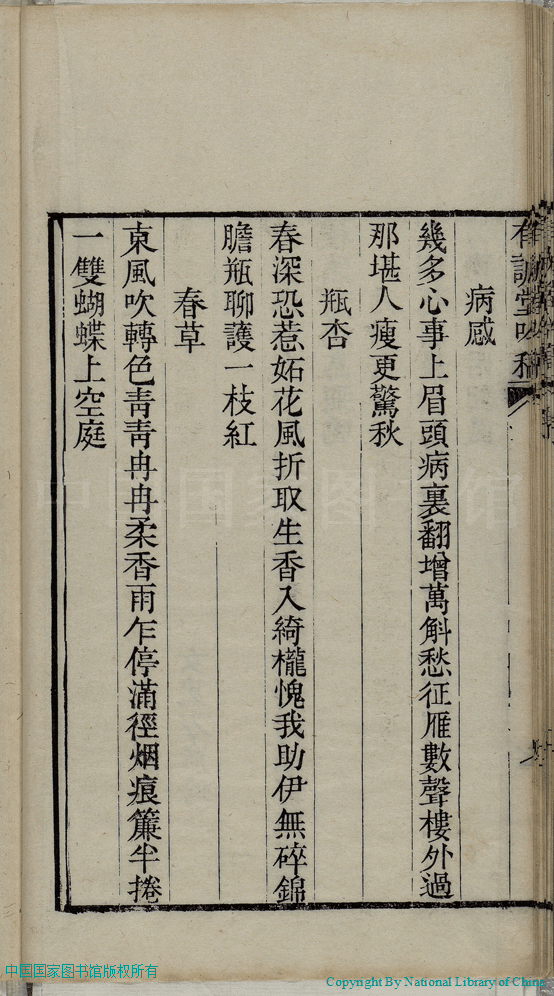 病感
幾多心事上眉頭病裏翻增萬斛愁征雁數聲樓外過
那堪人瘦更驚秋
瓶杏
春深恐惹妬花風折取生香入綺櫳愧我助伊無碎錦
膽瓶聊護一枝紅
春草
東風吹轉色青青冉冉柔香雨乍停滿徑烟痕簾半捲
一雙蝴蝶上空庭
中国国家图书馆
中国国家图书馆版权所有
Copyright By National Library of China